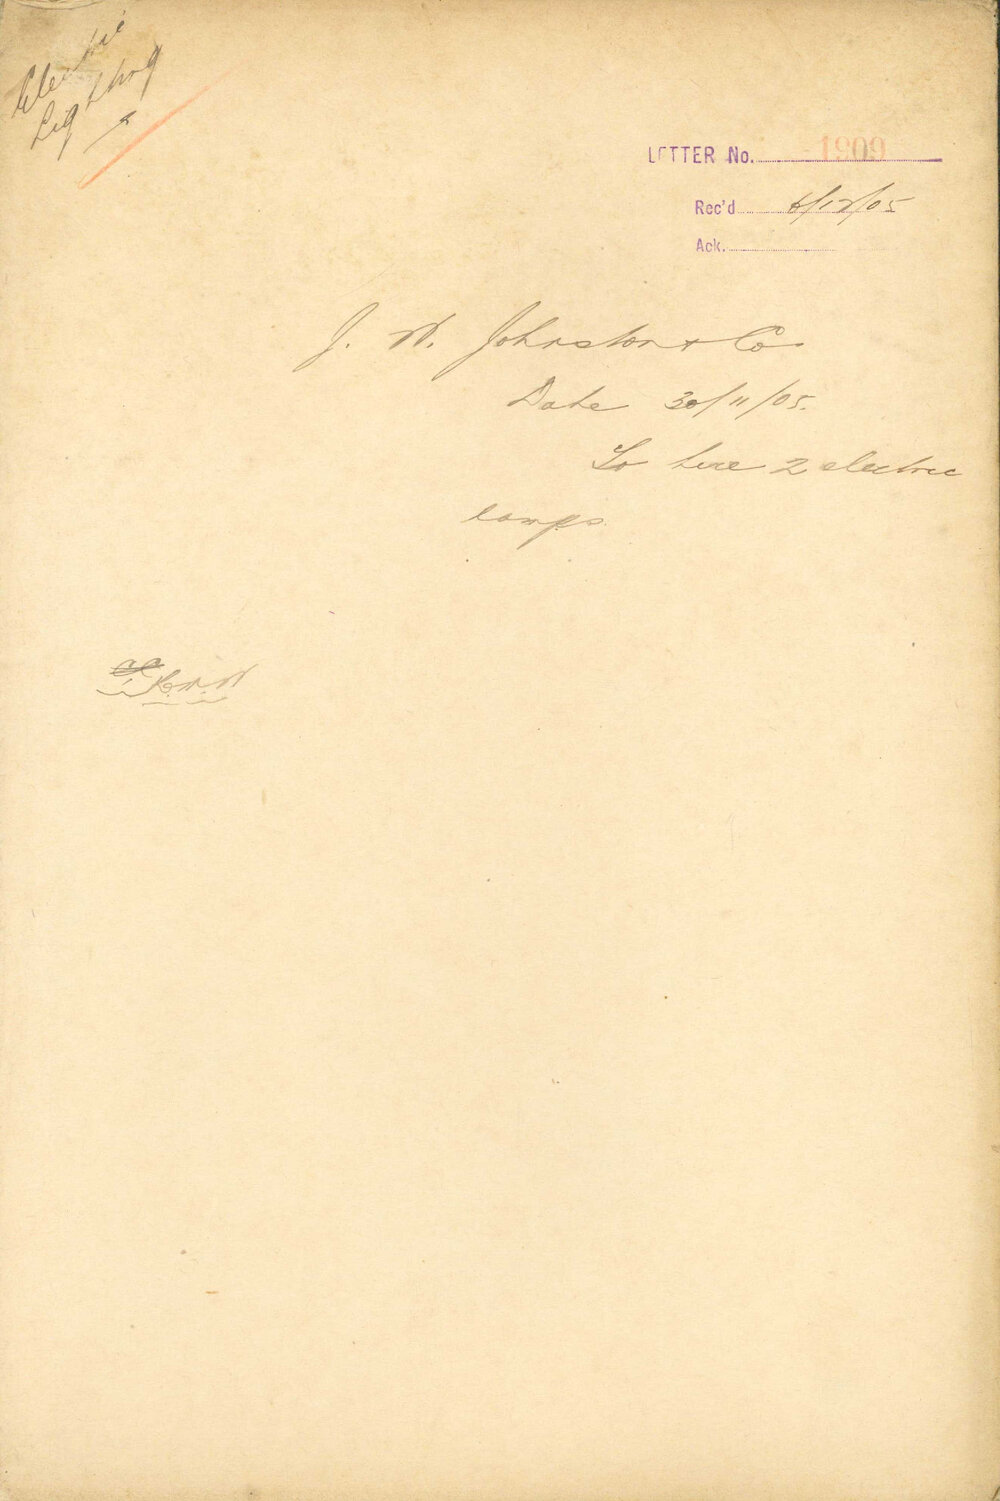 Electric
Lighting
LETTER No. 1909
Rec'd 6/12/05
Ack.
J. W. Johnston & Co
Date 30/11/05.
To hire 2 electric
lamps.